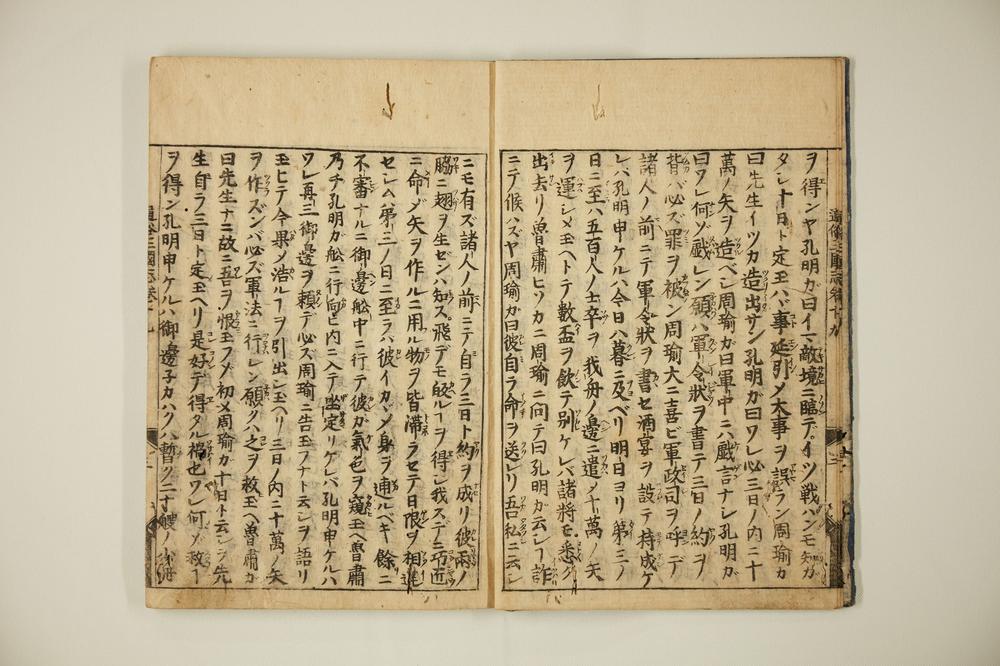 ヲ得ンヤ孔明ガ曰イマ敵境ニ臨デイツ戦ハンモ知ガ
タシ十日ト定玉ハヾ事延引〆大事ヲ誤ラン周瑜カ
曰先生イツカ造出サン孔明ガ曰ワレ心三日ノ内ニ十
萬ノ矢ヲ造ベシ周瑜ガ曰軍中ニハ戯言ナシ孔明ガ
曰ワレ何ゾ戯レン願ハ軍令狀ヲ書テ三日ノ約ヲ
背バ必ズ罪ヲ被ン周瑜大ニ喜ビ軍政司ヲ呼デ
諸人ノ前ニテ軍令狀ヲ書セ酒宴ヲ設テ持成ケ
レバ孔明申ケルハ今日ハ暮ニ及ベリ明日ヨリ第三ノ
日ニ至ハ五百人ノ士卒ヲ我舟ノ邊ニ遣〆十萬ノ矢
ヲ運シメ玉ヘトテ數盃ヲ飲テ別ケレバ諸將モ悉ク
出去リ魯肅ヒソカニ周瑜ニ問テ曰孔明カ云シヿ詐
ニテ候ハズヤ周瑜ガ曰彼自ラ命ヲ送レリ吾私ニ云シ
ニモ有ズ諸人ノ前ニテ自ラ三日ト約ヲ成リ彼兩ノ
脇ニ翅ヲ生ゼンハ知ズ飛デモ皈ルヿヲ得シ我スデニ巧匠
ニ命〆矢ヲ作ルニ用ル物ヲ皆滞ラセテ日限ヲ相違
セシムハ第三ノ日ニ至ラハ彼イカヾ〆身ヲ逋ルベキ餘ニ
不審ナルニ御邊舩中ニ行テ彼ガ氣色ヲ窺玉ヘ魯肅
乃チ孔明ガ舩ニ行向ヒ内ニ入テ坐定リケレバ孔明申ケルハ
ワレ再三御邊ヲ頼テ心ズ周瑜ニ告玉フナト云シヲ語リ
玉ヒテ今果〆浩ルヿヲ引出シ玉ヘリ三日ノ内ニ十萬ノ矢
ヲ作ズンバ必ズ軍法ニ行レン願クハ之ヲ救玉ヘ魯肅ガ
曰先生ナニ故ニ吾ヲ恨玉フゾ初〆周瑜カ十日ト云シヲ先
生自ラ三日ト定玉ヘリ是好テ得タル禍也ワレ何〆救ヿ
ヲ得ン孔明申ケルハ御邊子カハクハ暫ク二十艘ノ